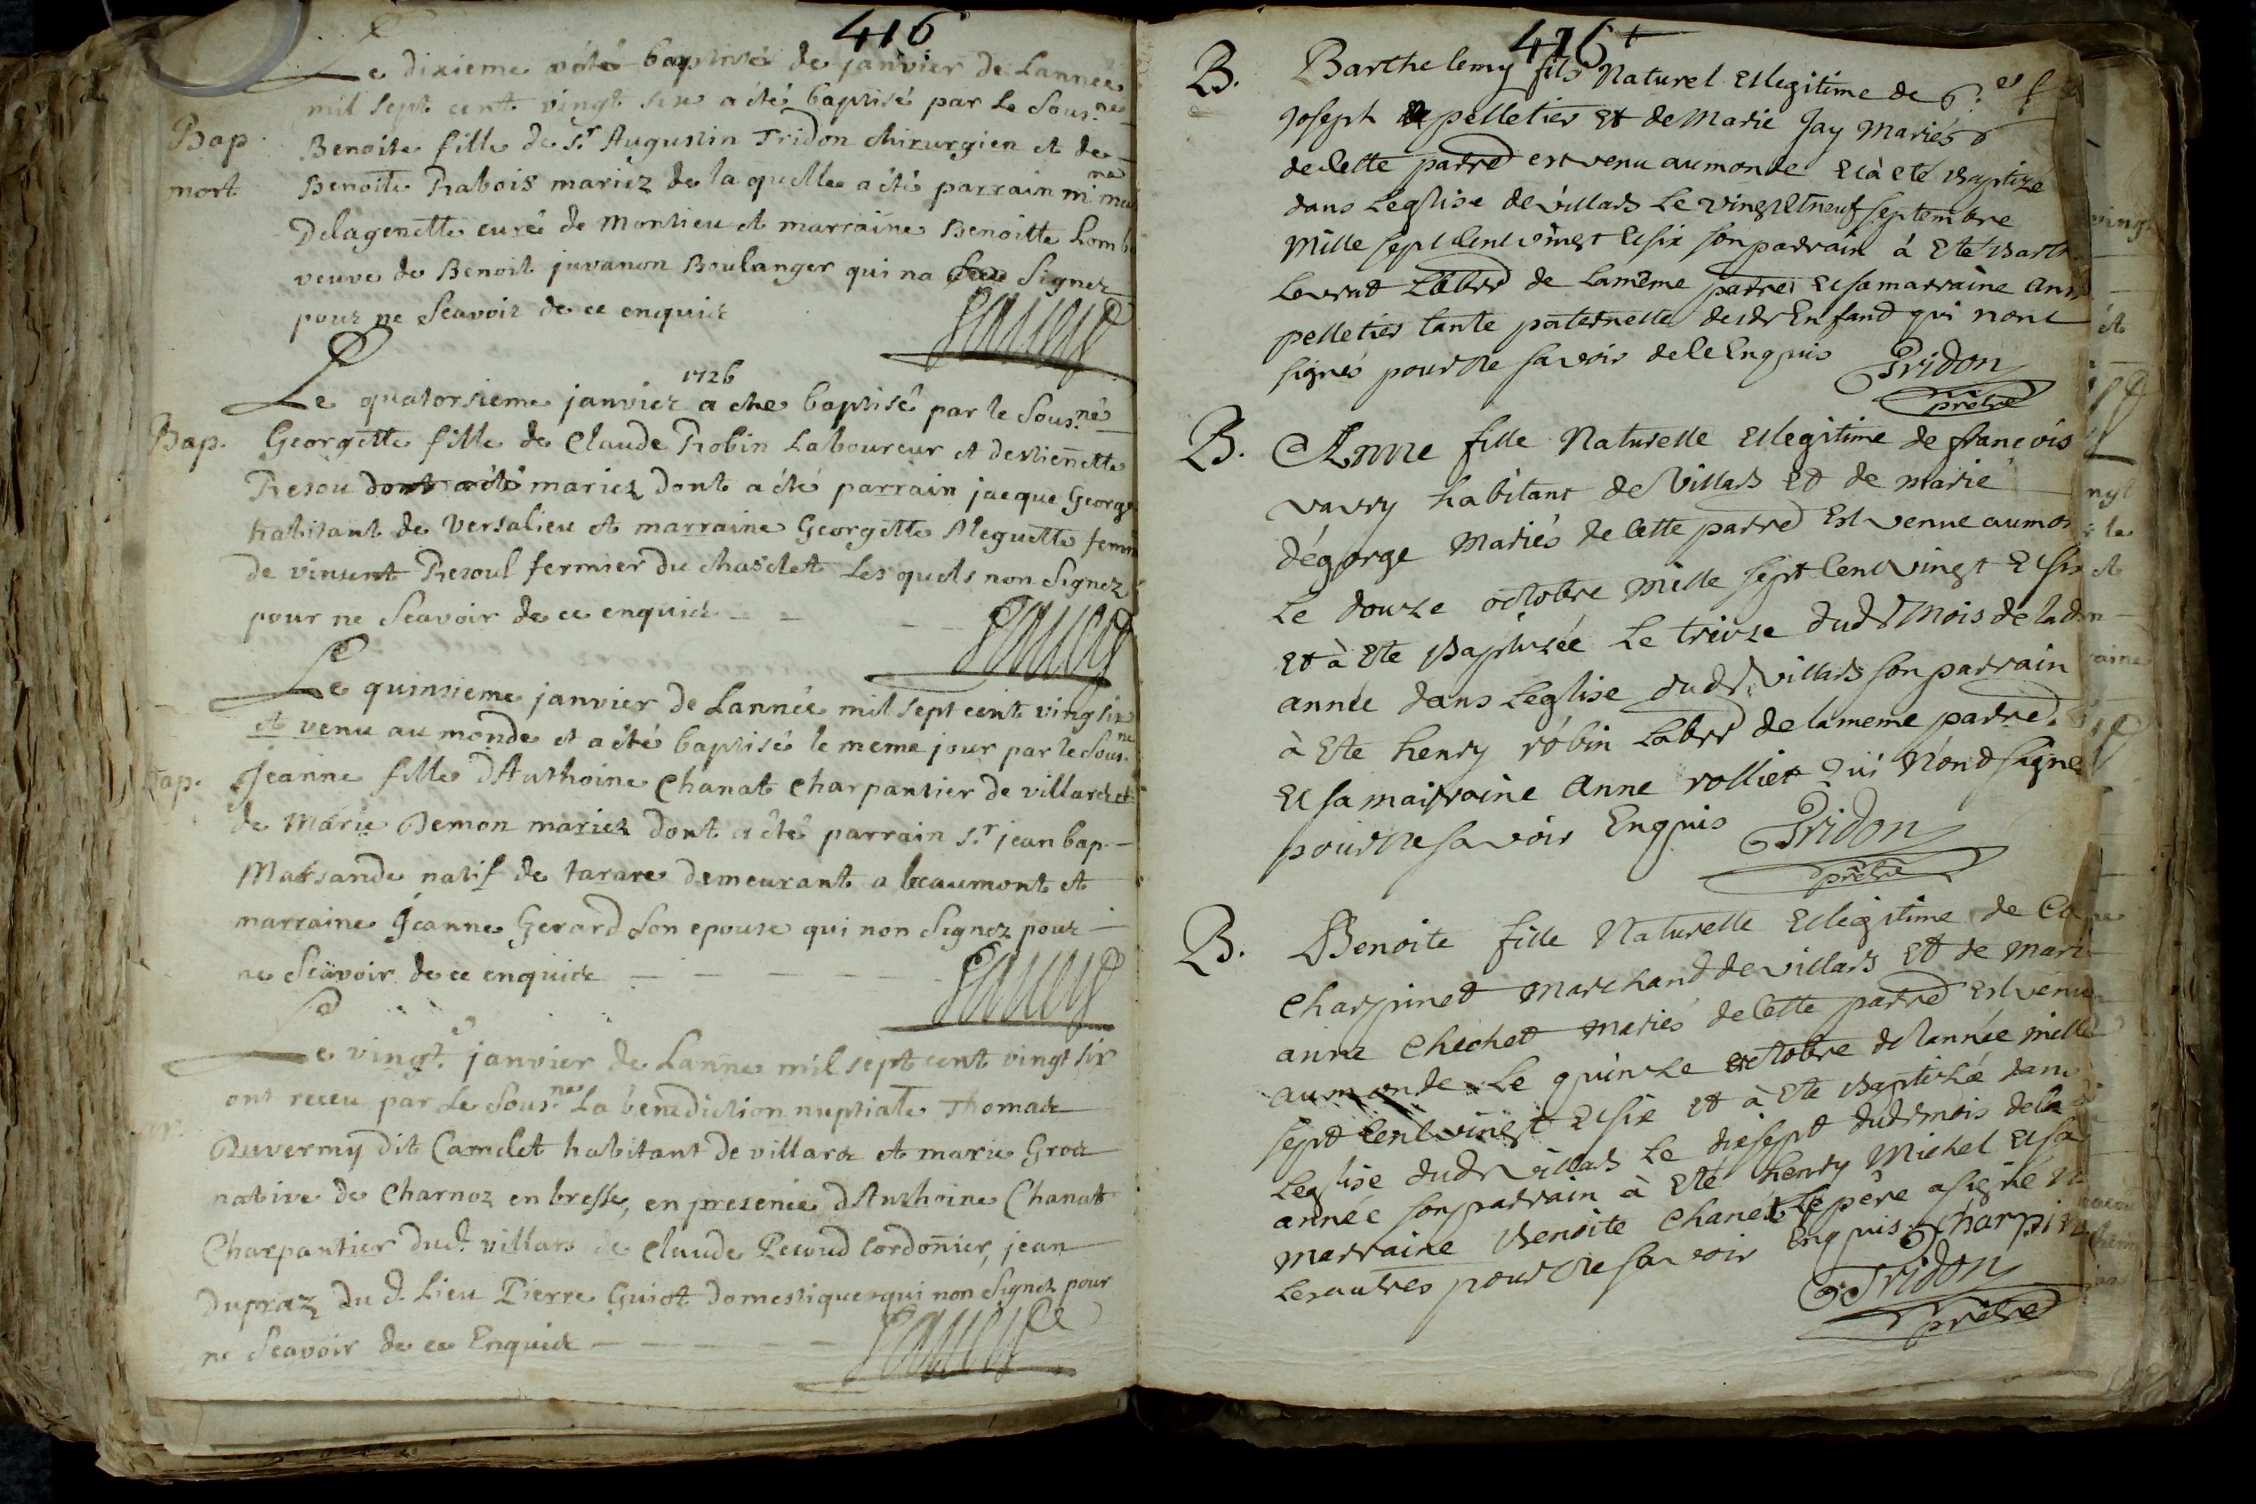 416
Le dixieme a été baptisé de janvier de Lannee
mil sept cent vingt six a été baptisé par le Sous.né
Bap. Benoite fille de Sr Augustin Tridon chirurgien et de
mort Benoite Rabois mariez de la quelle a été parrain
Delagenette curé de Montieu et marraine Benoitte Lomb
veuve de Benoit juvanon Boulanger qui na Signez
pour ne Scavoir de ce enquis
1726
Le quatorsieme janvier a ete baptisé par le Sous.né
Bap. Georgette fille de Claude Robin Laboureur et destiennette
Resou dont a été mariez dont a été parrain jacque George
habitant de Versalieu et marraine Georgette Aleguette femm
de vincent Resoul fermier du chaslet Lesquels non Signez
pour ne Scavoir de ce enquis
Le quinsieme janvier de Lannée mil sept cent ving six
et venu au monde et a été baptisé le meme jour par le Sous.né
Bap. Jeanne fille dAnthoine Chanat Charpantier de villars et
de Marie Demon mariez dont a été parrain Sr jean bap
Marsande natif de tarare demeurant a beaumont et
marraine Jeanne Gerard Son epouse qui non Signez pour
ne Scavoir de ce enquis
Le vingt janvier de Lanne mil sept cent vingt six
ont receu par le Sous.né La benediction nuptiale Thomas
Duvermy dit Camelet habitant de villars et marie Gros
native de Charnoz en bresse, en presence dAnthoine Chanat
Charpantier dud. villars de Claude Resoud Cordonier, jean
Dupraz du d. Lieu Pierre Guiot domestiques qui non Signez pour
ne Scavoir de ce Enquis
416+
B. Barthelemy fils Naturel Et legitime de
Joseph pelletier Et de Marie Jay Mariés
de Cette parre est venu au monde Et à été Baptizé
dans Leglise de villars Le vingt Et neuf septembre
Mille sept Cent vingt Et six son parrain à Eté Barth
Levrat Labre de La même parre Et sa marraine Ann
pelletier tante paternelle dudr Enfand qui nont
signés pour Ne savoir de Ce Enquis Tridon
prêtre
B. Anne fille Naturelle Et legitime de françois
vavry habitant de Villars Et de marie
dégorge Mariés de Cette parre Est venue au mon
Le douze octobre Mille sept Cent vingt Et six
Et à Ete Baptizée Le treize dudr Mois de lad
année dans Leglise dudr villars son parrain
à Ete henry robin Labre de la meme parre
Et sa mairraine Anne rolliet Qui Nond signe
pour Ne savoir Enquis Tridon
prêtre
B. Benoite fille Naturelle Et legitime de Cl
Charpinet Marchand de villars Et de mari
anne Chichet mariés de Cette parre Est venue
au monde Le quinze octobre de lannée mille
sept Cent vingt Et six Et à Ete Baptizée dans
Leglise dudr villars Le disept dudr mois de la
année son parrain à Eté henry Michel Et sa
marraine Benoite Chanet Le père a signé N
Les autres pour Ne savoir Enquis Charpin
Tridon
prêtre